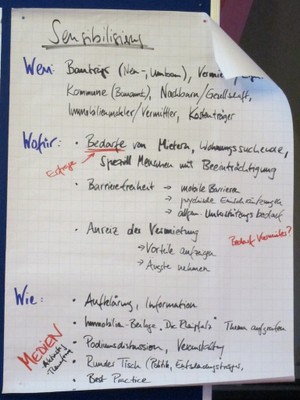 Sensibilisierung
Wen: Bauträger (Neu-, Umbau), Vermieter,
Kommune (Bauamt), Nachbarn/Gesellschaft,
Immobilienmakler/Vermittler, Kostenträger
Wofür: • Bedarfe von Mietern, Wohnungssuchende,
speziell Menschen mit Beeinträchtigung
• Barrierefreiheit → mobile Barrieren
→ psychische
→ Unterstützungsbedarf
• Anreiz der Vermietung
→ Vorteile aufzeigen
→ Ängste nehmen
Bedarf Vermieter?
Wie: • Aufklärung, Information
• Immobilien-Beilage "Die Rheinpfalz" Thema aufgreifen
• Podiumsdiskussion, Veranstaltung
• Runder Tisch (Politik, Entscheidungsträger,
• Best Practice
MEDIEN